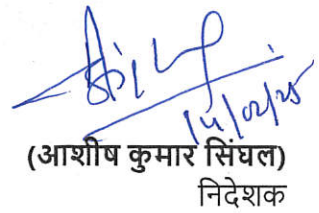 14/02/25
(आशीष कुमार सिंघल)
निदेशक